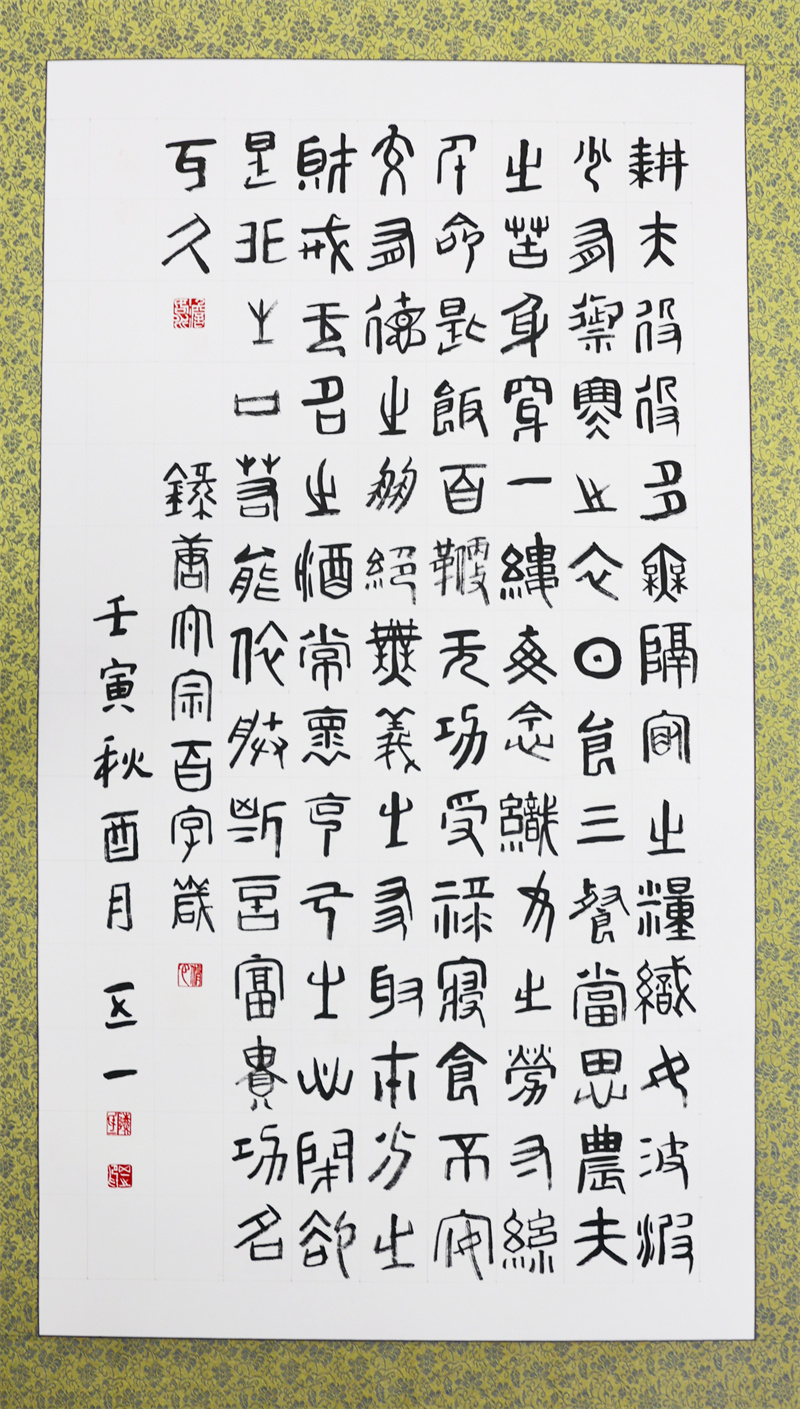 耕夫役役多無隔宿之糧織女波波
少有禦寒之衣日食三餐當思農夫
之苦身穿一縷每念織女之勞寸絲
千命匙飯百鞭无功受祿寢食不安
交有德之朋絕無義之友取本分之
財戒无名之酒常懷克己之心閉卻
是非之口若能依朕斯言富貴功名
可久
錄唐太宗百字箴
壬寅秋酉月 五一